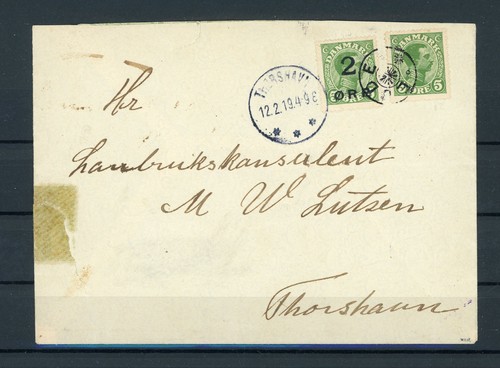 DANMARK
2
ØRE
DANMARK
ØRE 5
THORSHAVN
12.2.19.4-9E
Hr
Lanbrukskonsulent
M W Lützen
Thorshavn